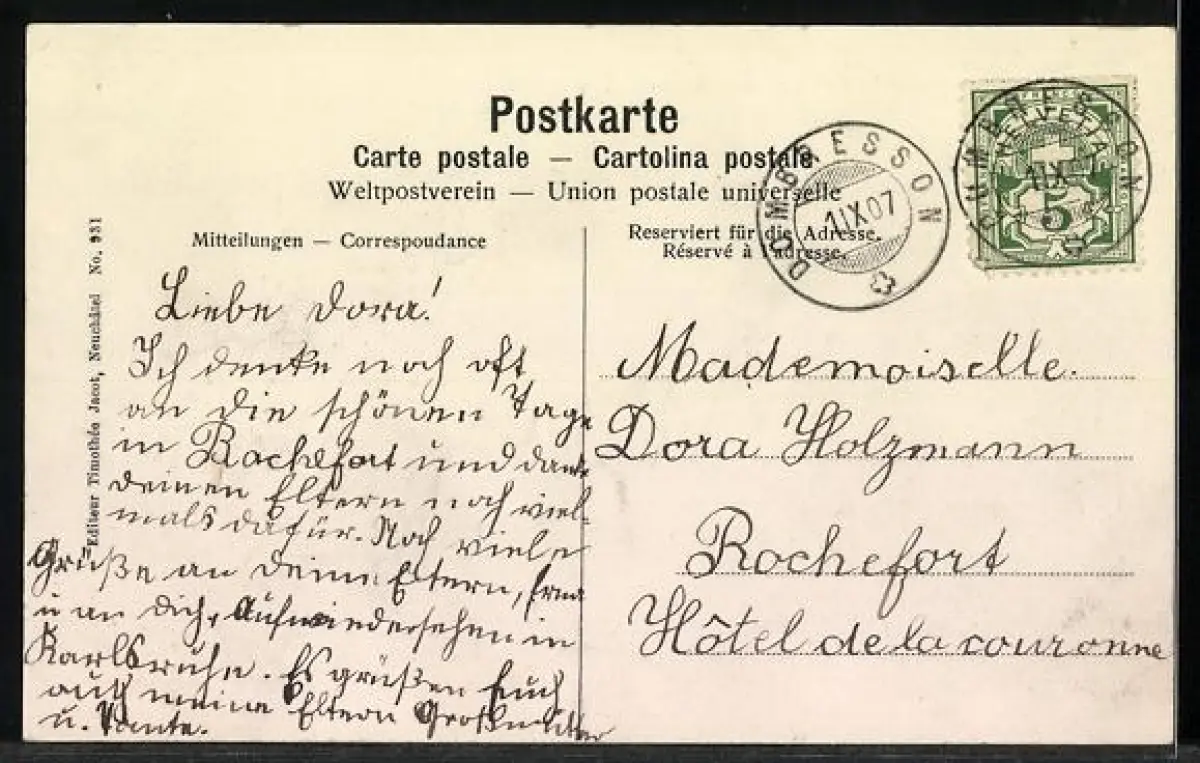 Postkarte
Carte postale — Cartolina postale
Weltpostverein — Union postale universelle
Mitteilungen — Correspoudance
Reserviert für die Adresse.
Réservé à l'adresse.
DOMBRESSON
1 IX 07
DOMBRESSON
1 IX 07
HELVETIA
FRANCO
5
Editeur Timothée Jacot, Neuchâtel No. 931
Liebe Dora!
Ich denke noch oft
an die schönen Tage
in Rochefort und danke
deinen Eltern noch viel-
mals dafür. Noch viele
Grüße an deine Eltern, Erna
u an dich, Aufwiedersehen in
Karlsruhe. Es grüßen Euch
auch meine Eltern Großmutter
u. Tante.
Mademoiselle.
Dora Holzmann
Rochefort
Hôtel de la couronne